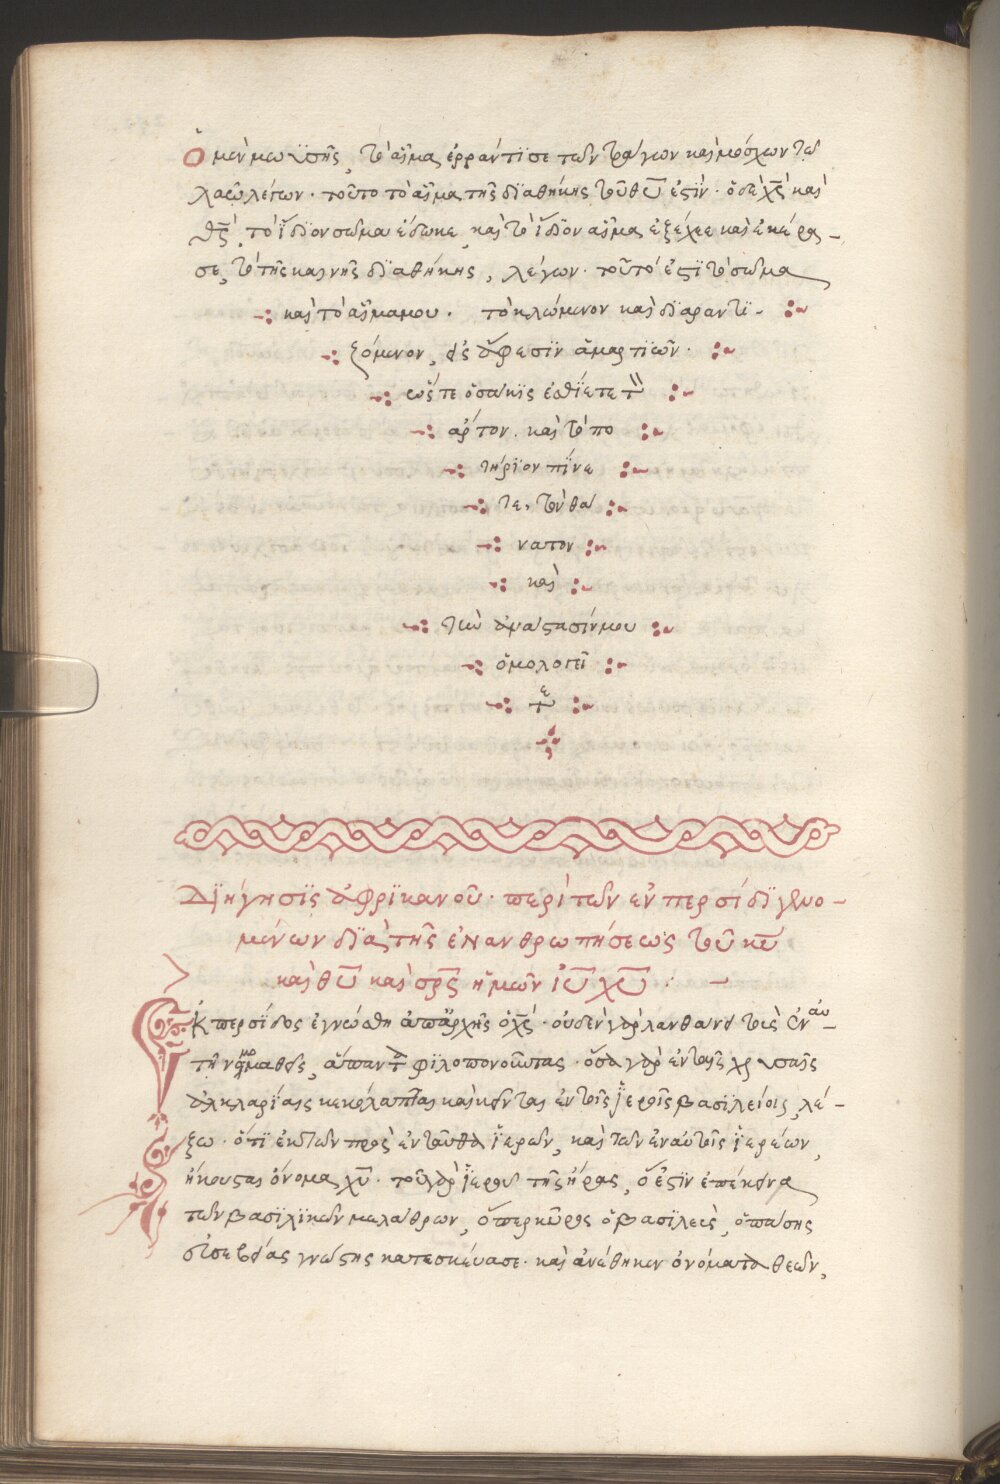 Ὁ μὲν μωυσῆς, τὸ αἷμα ἐρράντϊσε τῶν τράγων καὶ μόσχων τῶ
λαῶ λέγων· τοῦτο τὸ αἷμα τῆς δϊαθήκης τοῦ θῡ ἐστϊν· ὁ δὲ χ̄ς καὶ
θ̄ς, τὸ ἴδϊον σῶμα ἔδωκε, καὶ τὸ ἴδϊον αἷμα ἐξέχεε καὶ ἐκέρα-
σε, τὸ τῆς καινῆς δϊαθήκης, λέγων· τοῦτό ἐστϊ τὸ σῶμα
καὶ τὸ αἷμα μου· τὸ κλώμενον καὶ δϊαραντϊ-
ζόμενον, εἰς ἄφεσϊν ἁμαρτϊῶν·
ὥστε ὁσάκϊς ἐσθίετε τὸν
ἄρτον· καὶ τὸ πο
τήρϊον πίνε
τε, τὸν θά
νατον
καὶ
τὴν ἀνάστασίν μου
ὁμολογεῖ
τε
Δϊήγησϊς ἀφρϊκανοῦ· περὶ τῶν ἐν περσίδϊ γενο-
μένων δϊὰ τῆς ἐνανθρωπήσεως τοῦ κῡ
καὶ θῡ καὶ σρ̄ς ἡμῶν ῑῡ χῡ
Ἐκ περσίδος ἐγνώσθη ἀπαρχῆς ὁ χ̄ς· οὐδὲν γὰρ λανθάνει τοὺς ἐν αὐ-
τῆ νομομαθεῖς, ἅπαντα φϊλοπονοῦντας· ὅσα γὰρ ἐν ταῖς χρυσαῖς
ἀλκλαρίαις κεκόλαπται καὶ κεῖνται ἐν τοῖς ἱεροῖς βασϊλείοις, λέ-
ξω· ὅτϊ ἐκ τῶν πρὸς ἐνταῦθα ἱερῶν, καὶ τῶν ἐν αὐτοῖς ἱερέων,
ἤκουσται ὄνομα χῡ· τοῦ γὰρ ἱεροῦ τῆς ἥρας, ὅ ἐστϊν ἐπέκεινα
τῶν βασϊλϊκῶν μελάθρων, ὅπερ κῦρος ὁ βασϊλεὺς, ὁ πάσης
εὐσεβείας γνώστης κατεσκεύασε· καὶ ἀνέθηκεν ὀνόματα θεῶν,